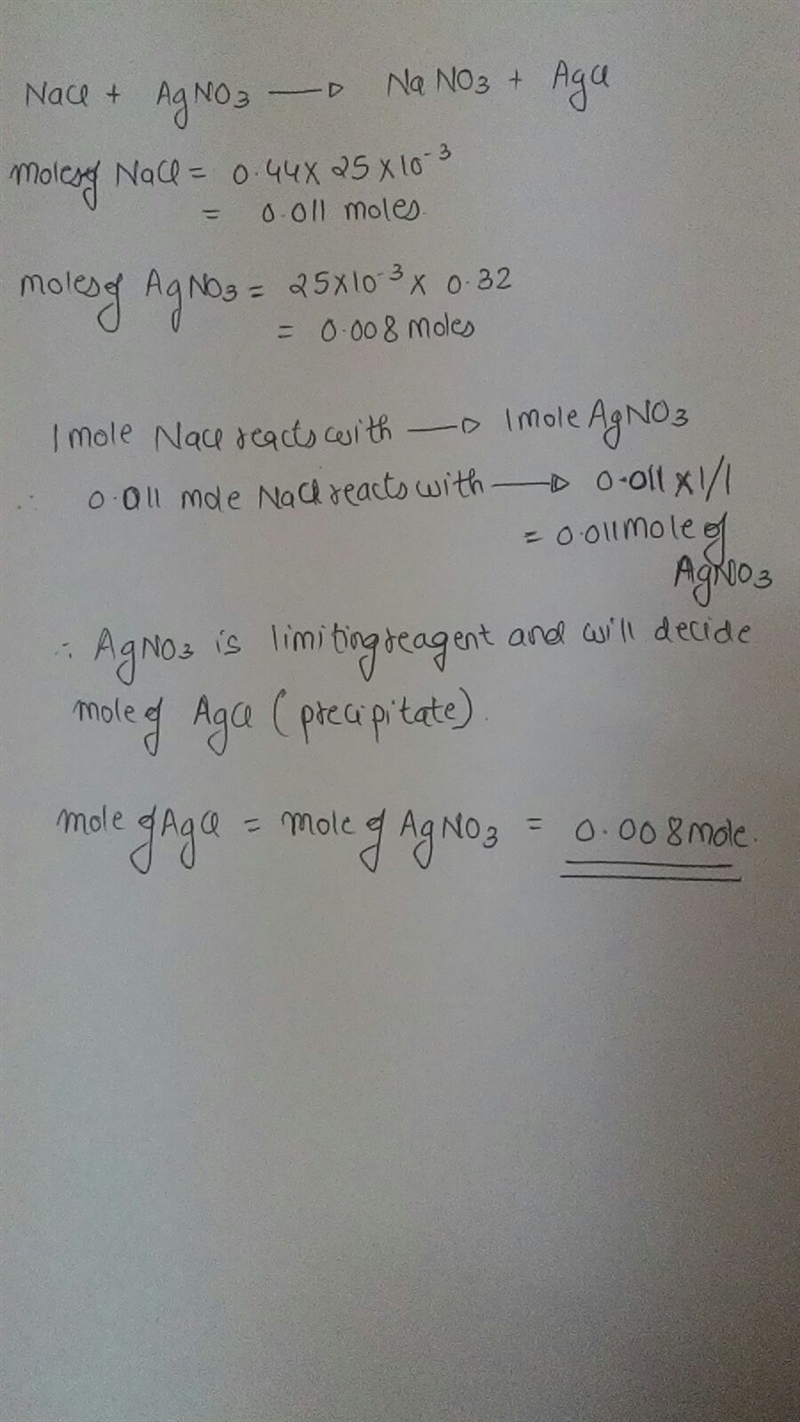 NaCl + AgNO3 → NaNO3 + AgCl
moles of NaCl = 0.44 x 25 x 10-3
= 0.011 moles.
moles of AgNO3 = 25x10-3 x 0.32
= 0.008 moles
1 mole NaCl reacts with → 1 mole AgNO3
∴ 0.011 mole NaCl reacts with → 0.011 x 1/1
= 0.011 mole of
AgNO3
∴ AgNO3 is limiting reagent and will decide
mole of AgCl (precipitate).
mole of AgCl = mole of AgNO3 = 0.008 mole.